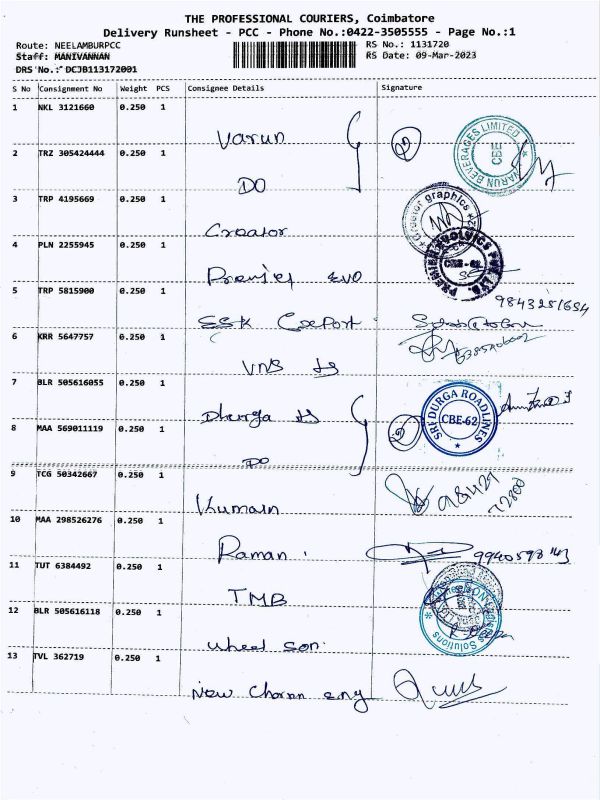 THE PROFESSIONAL COURIERS, Coimbatore
Delivery Runsheet - PCC - Phone No.:0422-3505555 - Page No.:1
Route: NEELAMBURPCC
RS No.: 1131720
Staff: MANIVANNAN
RS Date: 09-Mar-2023
DRS No.: DCJB113172001
S No Consignment No Weight PCS Consignee Details Signature
1 NKL 3121660 0.250 1 Varun
VARUN BEVERAGES LIMITED CBE
2 TRZ 305424444 0.250 1 DO
3 TRP 4195669 0.250 1 Creator
Creator graphics
4 PLN 2255945 0.250 1 Premier EVO
CBE - 62
5 TRP 5815900 0.250 1 SSK Export
9843251654
6 KRR 5647757 0.250 1 VNS
7 BLR 505616055 0.250 1 Dhurga
SRI DURGA ROADLINES CBE-62
8 MAA 569011119 0.250 1 DO
9 TCG 50342667 0.250 1 Kumain
98429
72800
10 MAA 298526276 0.250 1 Raman
11 TUT 6384492 0.250 1 TMB
12 BLR 505616118 0.250 1 wheel son
Solutions
13 TVL 362719 0.250 1 New Charan eng